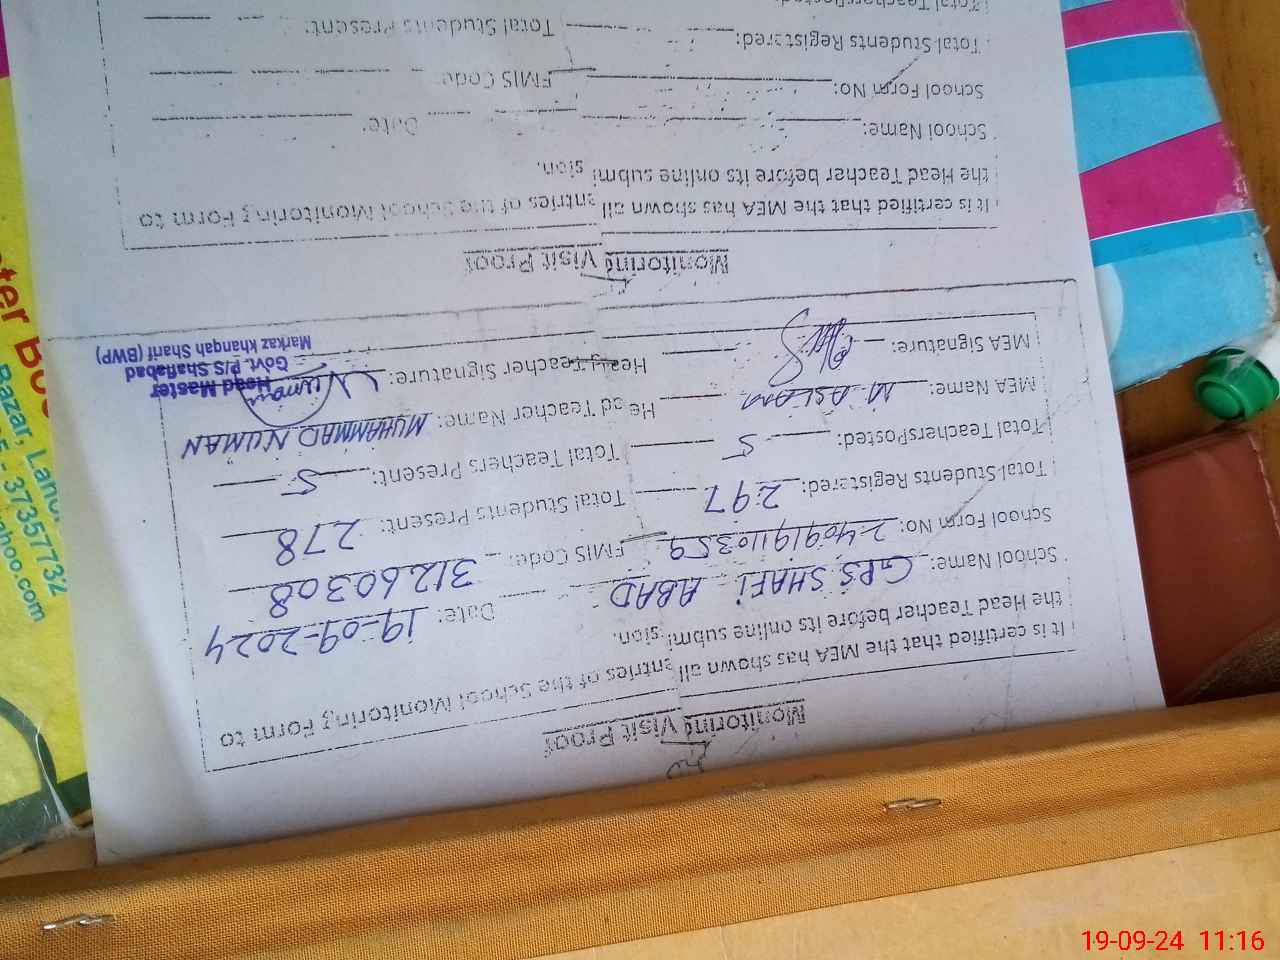 Monitoring Visit Proof
It is certified that the MEA has shown all entries of the School Monitoring Form to
the Head Teacher before its online submi sion.
School Name: GPS SHAFI ABAD Date: 19-09-2024
School Form No: 240919110359 EMIS Code: 31260308
Total Students Registered: 297 Total Students Present: 278
Total Teachers Posted: 5 Total Teachers Present: 5
MEA Name: M. ASLAM Head Teacher Name: MUHAMMAD NUMAN
MEA Signature: Head Teacher Signature: Numan
Head Master
Govt. P/S Shafiabad
Markaz khanqah Sharif (BWP)
Monitoring Visit Proof
It is certified that the MEA has shown all entries of the School Monitoring Form to
the Head Teacher before its online submi sion.
School Name: Date:
School Form No: EMIS Code:
Total Students Registered: Total Students Present:
Bazar, Lahor
5 - 37357732
ahoo.com
19-09-24 11:16